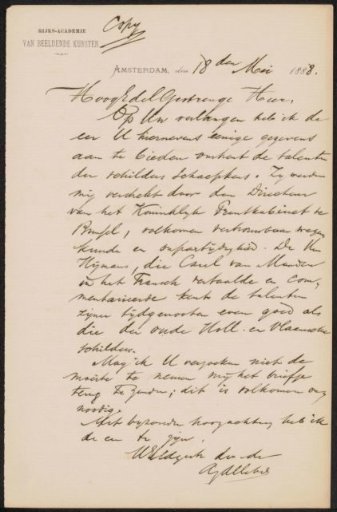 Copy
RIJKS-ACADEMIE
VAN BEELDENDE KUNSTEN.
AMSTERDAM, den 18den Mei 1888.
HoogEdelGestrenge Heer,
Op Uw verlangen heb ik de
eer U hiernevens eenige gegevens
aan te bieden omtrent de talenten
der schilders Schaepkens. Zy werden
my verschaft door den Directeur
van het Koninklyk Prentkabinet te
Brussel, volkomen vertrouwbaar wegens
kunde en onpartydigheid. De Heer
Hymans, die Carel van Mander
in het Fransch vertaalde en com-
mentarieerde kent de talenten
zyner tydgenooten even goed als
die der oude Holl. en Vlaamsche
schilders.
Mag ik U verzoeken niet de
moeite te nemen my het briefje
terug te zenden; dit is volkomen on-
noodig.
Met byzondere hoogachting heb ik
de eer te zyn.
UEdGestr dw. d.
AAllebé